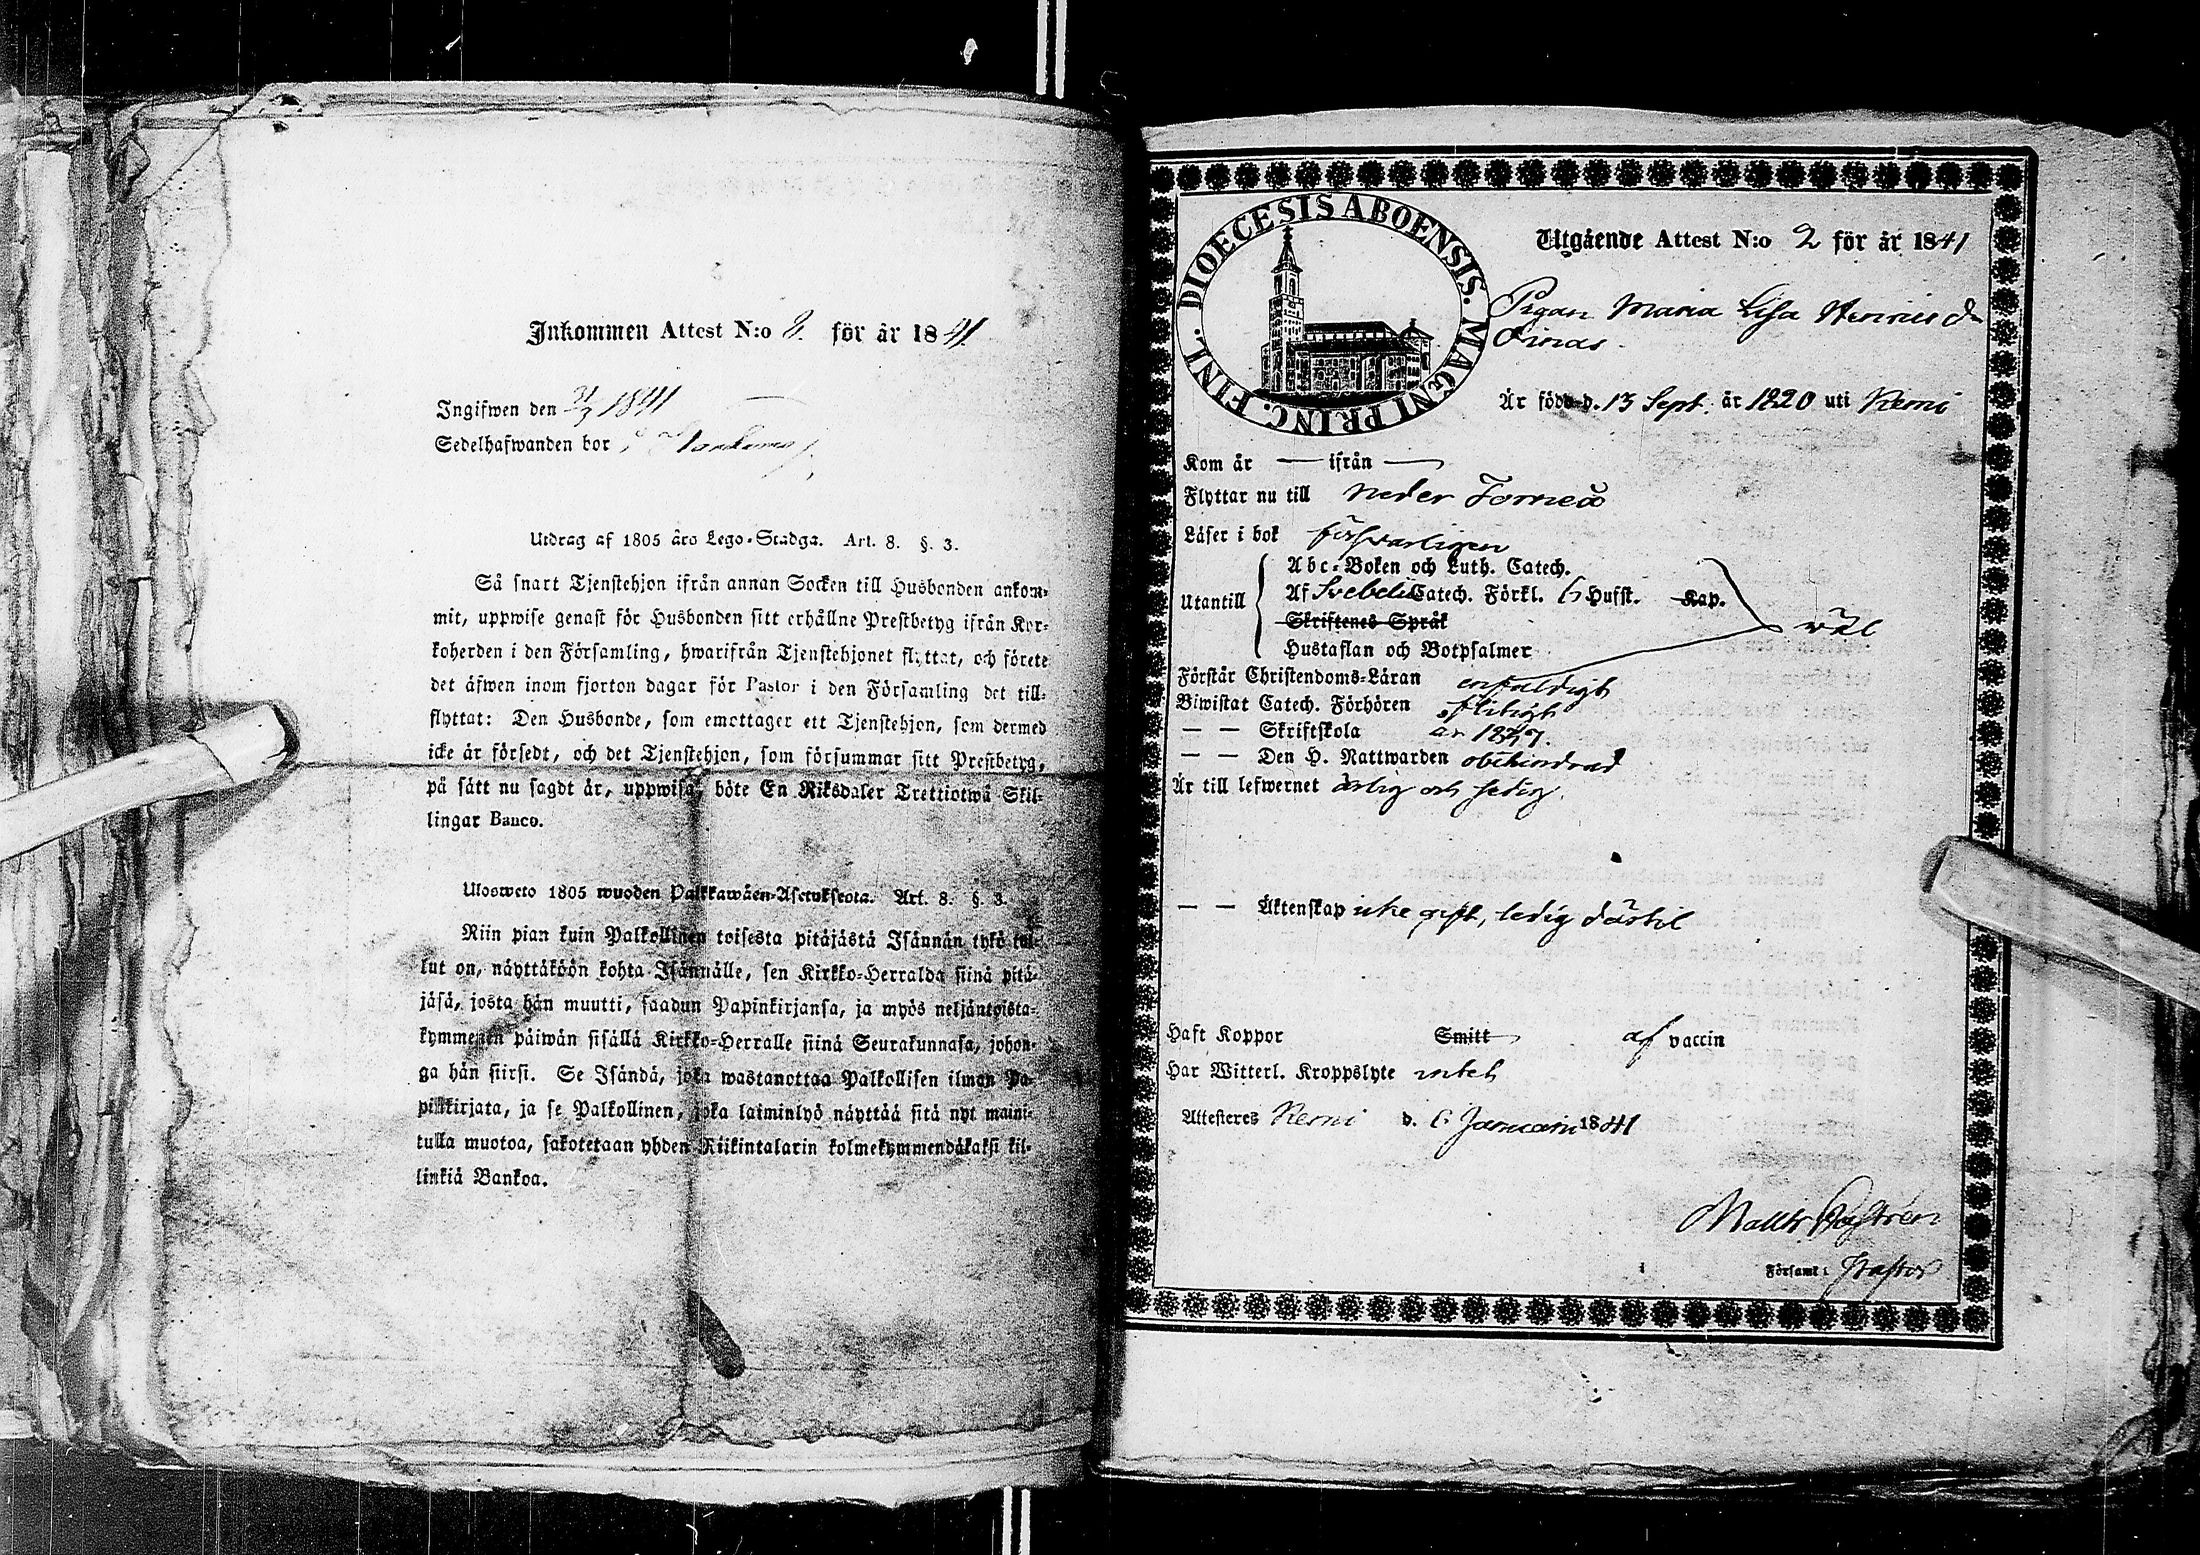 Inkommen Attest N:o 2. för år 1841.
Ingifwen den 1841
Sedelhafwanden bor i
Utdrag af 1805 års Lego-Stadga. Art. 8. §. 3.
Så snart Tjenstehjon ifrån annan Socken till Husbonden ankom-
mit, uppwise genast för Husbonden sitt erhållne Prestbetyg ifrån Kyr-
koherden i den Församling, hwarifrån Tjenstehjonet flyttat, och förete
det äfwen inom fjorton dagar för Pastor i den Församling det till-
flyttat: Den Husbonde, som emottager ett Tjenstehjon, som dermed
icke är försedt, och det Tjenstehjon, som försummar sitt Prestbetyg,
på sätt nu sagdt är, uppwisa, böte En Riksdaler Trettiotwå Skil-
lingar Banco.
Ulosweto 1805 wuoden Palkkawäen-Asetuksesta. Art. 8. §. 3.
Niin pian kuin Palkollinen toisesta pitäjästä Isännän tykö tul-
lut on, näyttäköön kohta Isännälle, sen Kirkko-Herralda siinä pitä-
jäsä, josta hän muutti, saadun Papinkirjansa, ja myös neljäntoista-
kymmenen päiwän sisällä Kirkko-Herralle siinä Seurakunnasa, johon-
ga hän siirsi. Se Isändä, joka wastanottaa Palkollisen ilman Pa-
pinkirjata, ja se Palkollinen, joka laiminlyö näyttää sitä nyt maini-
tulla muotoa, sakotetaan yhden Riikintalarin kolmekymmendäkaksi kil-
linkiä Bankoa.
DIOECESIS ABOENSIS. MAGNI PRINC. FINL.
Utgående Attest N:o 2 för år 1841
Pigan Maria Lisa Henrics dr
Är född d. 13 Sept. år 1820 uti Kemi
Kom år — ifrån —
Flyttar nu till Neder Torneå
Läser i bok försvarligen
Abc-Boken och Luth. Catech.
Utantill Af Svebelii Catech. Förkl. 6 Hufst. Kap.
Skriftenes Språk wäl
Hustaflan och Botpsalmer
Förstår Christendoms-Läran enfaldigt
Biwistat Catech. Förhören flitigt
— — Skriftskola år 1837.
— — Den H. Nattwarden obehindrad
Är till lefwernet ärlig och sedig.
— — Äktenskap icke gift, ledig därtil
Haft Koppor Smitt af vaccin
Har Witterl. Kroppslyte intet
Attesteres Kemi d. 6 Januarii 1841
Matth. Castrén
Församl: Pastor